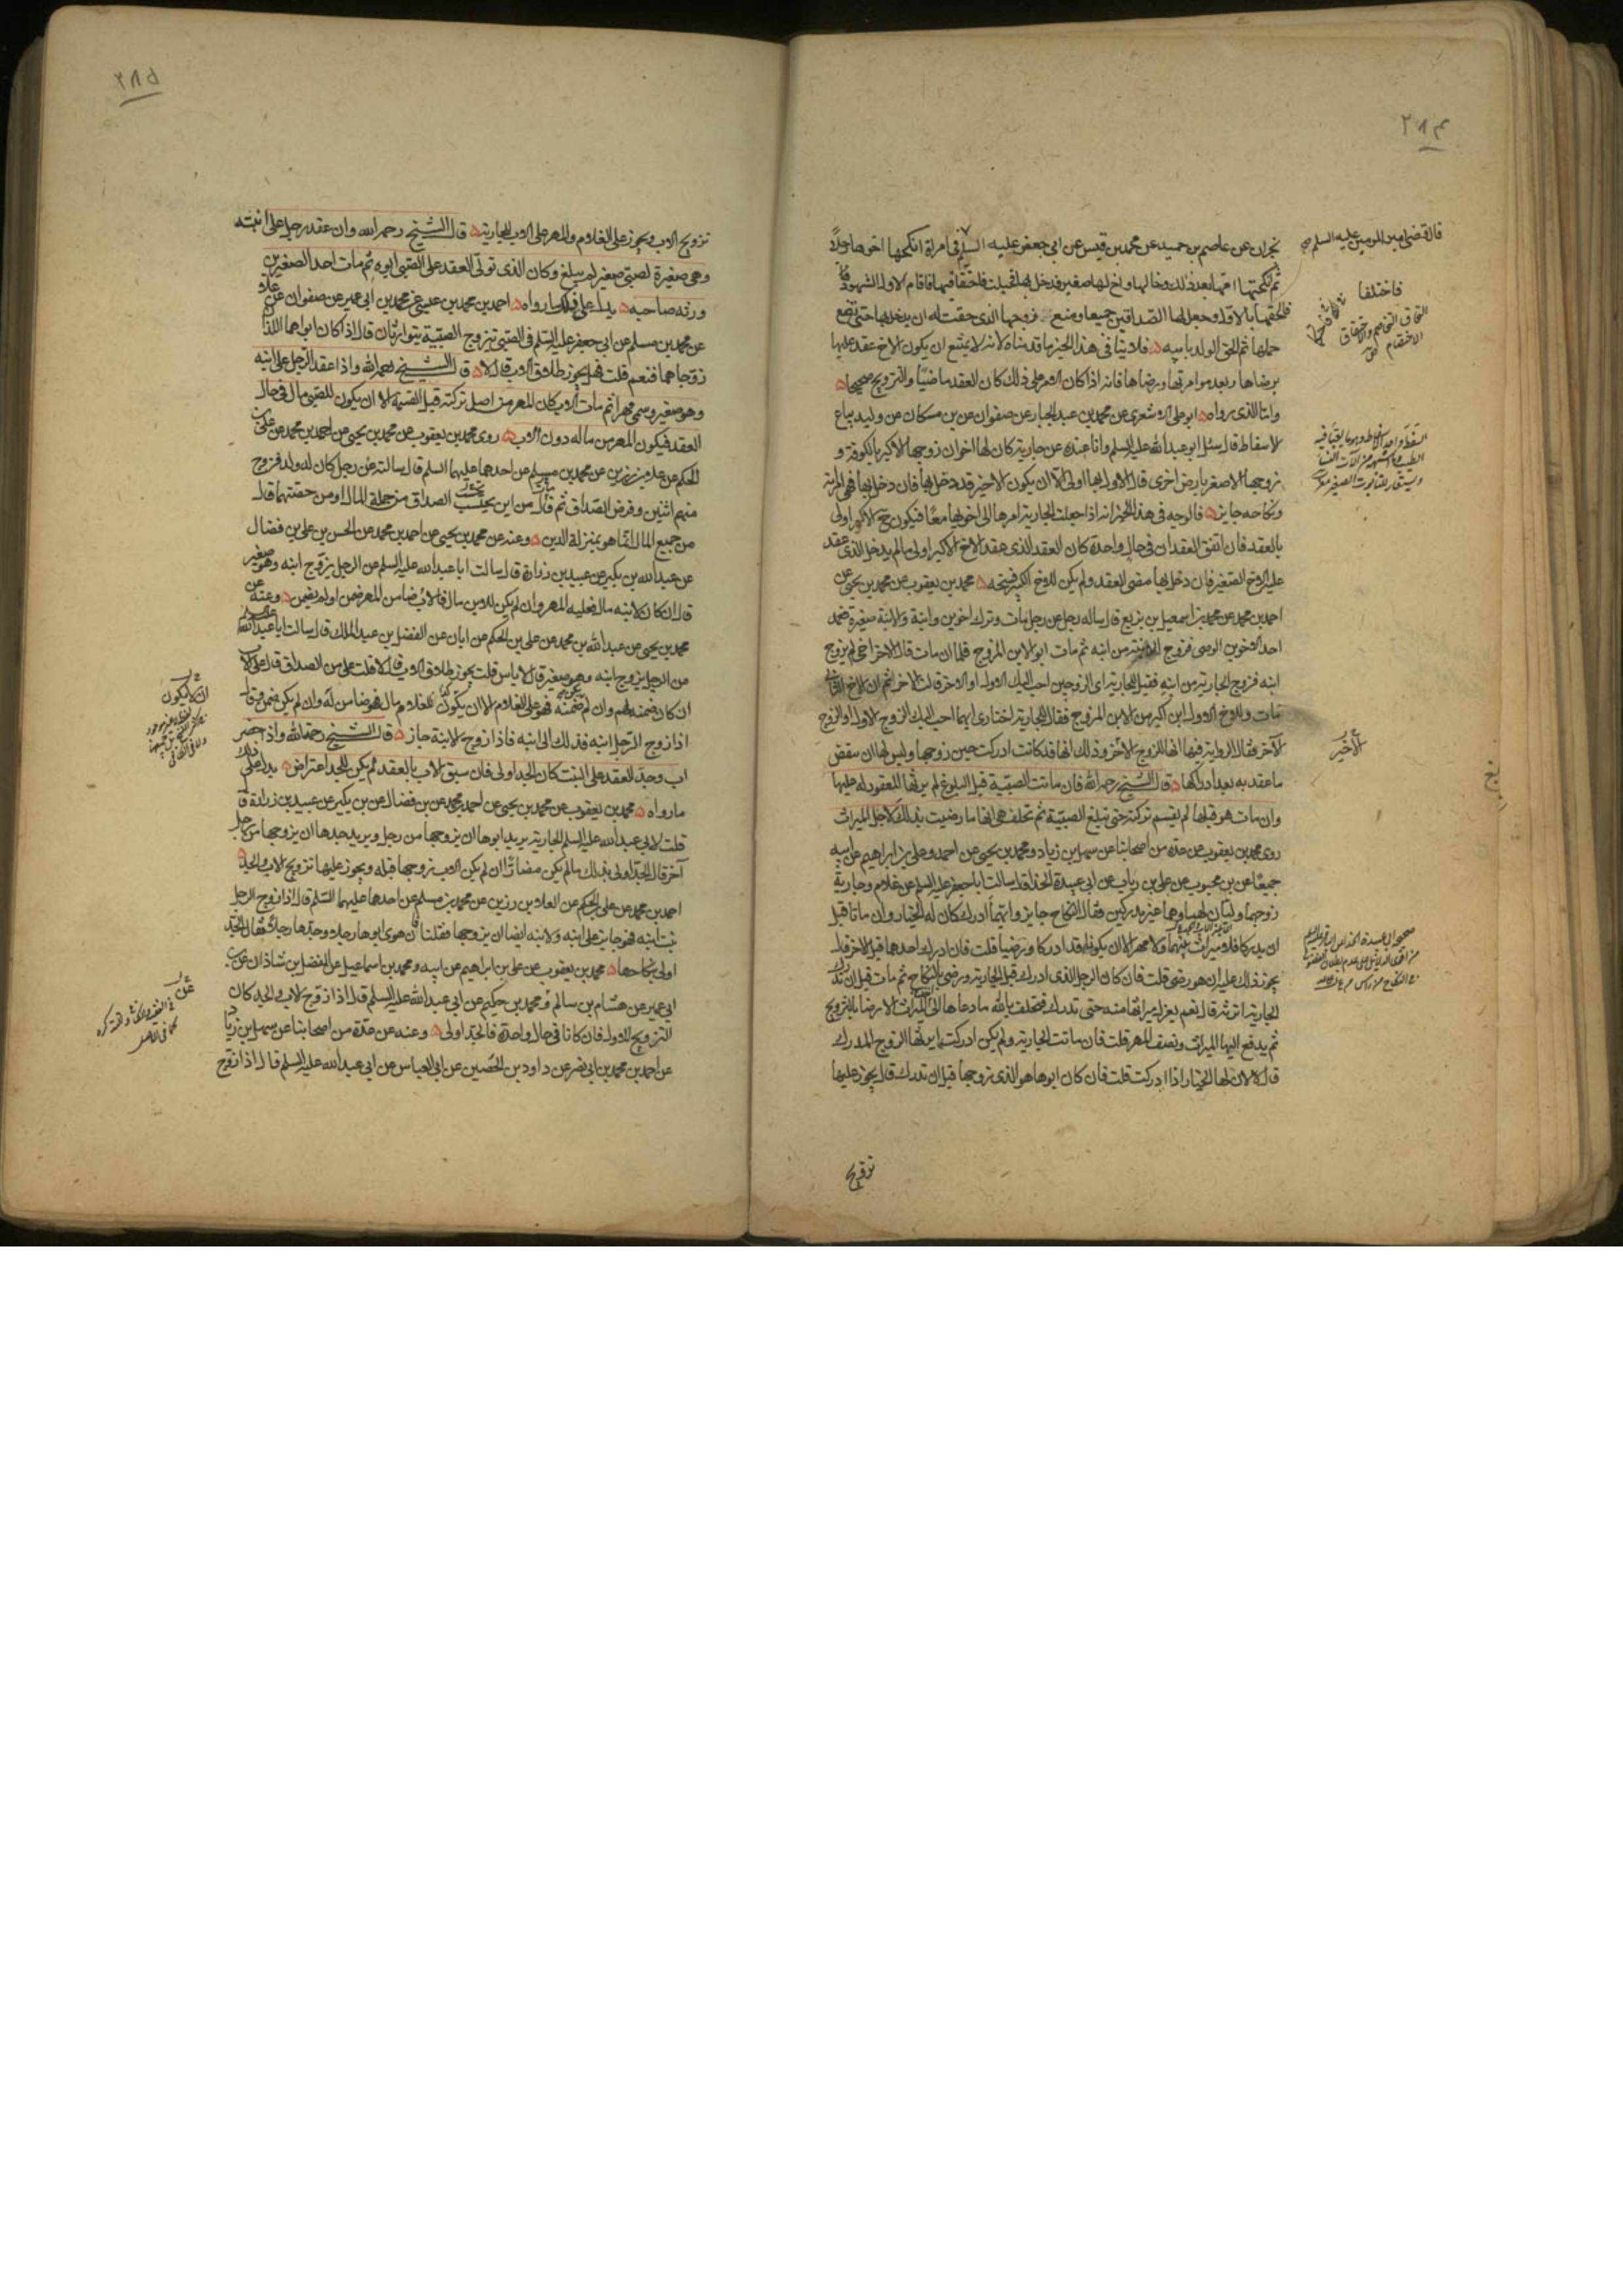 ٢٨٤
نجران عن عاصم بن حميد عن محمد بن قيس عن ابي جعفر عليه السلم في امراة انكحها اخوها رجلاً
ثم انكحتها امها بعد ذلك رجلا وخالها واخ لها صغير فدخل بها فحبلت فاحتقا فيها فاقام الاول الشهود
فالحقها بالاول وجعل لها الصداقين جميعا ومنع زوجها الذي حقت له ان يدخل بها حتى تضع
حملها ثم الحق الولد بابيه فلا ينافي هذا الخبر ما قدمناه لانه لا يمتنع ان يكون الاخ عقد عليها
برضاها وبعد موامرتها ورضاها فانه اذا كان الامر على ذلك كان العقد ماضيا والتزويج صحيحا
واما الذي رواه ابو علي الاشعري عن محمد بن عبد الجبار عن صفوان عن بن مسكان عن وليد بياع
الاسفاط قال سئل ابو عبد الله عليه السلم وانا عنده عن جارية كان لها اخوان زوجها الاكبر بالكوفة و
زوجها الاصغر بارض اخرى قال الاول بها اولى الا ان يكون الاخير قد دخل بها فان دخل بها فهي امراته
ونكاحه جايز فالوجه في هذا الخبر انه اذا جعلت الجارية امرها الى اخويها معا فيكون حق الاكبر اولى
بالعقد فان اتفق العقدان في حالة واحدة كان العقد الذي عقد الاخ الاكبر اولى ما لم يدخل الذي عقد
عليه الاخ الصغير فان دخل بها مضى العقد ولم يكن للاخ الكبير فسخه محمد بن يعقوب عن محمد بن يحيى عن
احمد بن محمد عن محمد بن اسمعيل بن بزيع قال ساله رجل عن رجل مات وترك اخوين وابنة والابنة صغيرة فعمد
احد الاخوين الوصي فزوج الابنة من ابنه ثم مات ابو الابن المزوج فلما ان مات قال الاخر اخي لم يزوج
ابنه فزوج الجارية من ابنه فقيل للجارية اي الزوجين احب اليك الاول او الاخر قالت الاخر ثم ان الاخ الثاني
مات وللاخ الاول ابن اكبر من الابن المزوج فقال للجارية اختاري ايهما احب اليك الزوج الاول او الزوج
الآخر فقال الرواية فيها انها للزوج الاخر وذلك انها قد كانت ادركت حين زوجها وليس لها ان تنقض
ما عقدته بعد ادراكها قال الشيخ رحمه الله فان ماتت الصبية قبل البلوغ لم يرثها المعقود له عليها
وان مات هو قبلها لم تقسم تركته حتى تبلغ الصبية ثم تحلف هي انها ما رضيت بذلك لاجل الميراث
روى محمد بن يعقوب عن عدة من اصحابنا عن سهل بن زياد ومحمد بن يحيى عن احمد وعلي بن ابراهيم عن ابيه
جميعا عن بن محبوب عن علي بن رياب عن ابي عبيدة الحذا قال سالت ابا جعفر عليه السلم عن غلام وجارية
زوجهما وليان لهما وهما غير مدركين فقال النكاح جايز وايهما ادرك كان له الخيار وان ماتا قبل
ان يدركا فلا ميراث بينهما ولا مهر الا ان يكونا قد ادركا ورضيا قلت فان ادرك احدهما قبل الاخر قال
يجوز ذلك عليه ان هو رضي قلت فان كان الرجل الذي ادرك قبل الجارية ورضي بالنكاح ثم مات قبل ان تدرك
الجارية اترثه قال نعم يعزل ميراثها منه حتى تدرك فتحلف بالله ما دعاها الى اخذ الميراث الا رضاها بالتزويج
ثم يدفع اليها الميراث ونصف المهر قلت فان ماتت الجارية ولم يكن ادركت ايرثها الزوج المدرك
قال لا لان لها الخيار اذا ادركت قلت فان كان ابوها هو الذي زوجها قبل ان تدرك قال يجوز عليها
تزويج
قال قضى امير المومنين عليه السلم
فاختلفا
الاخير
بلغ
٢٨٥
تزويج الاب ويجوز على الغلام والمهر على الاب للجارية قال الشيخ رحمه الله وان عقد رجل على ابنته
وهي صغيرة لصبي صغير لم يبلغ وكان الذي تولى العقد على الصبي ابوه ثم مات احد الصغيرين
ورثه صاحبه يدل على ذلك ما رواه احمد بن محمد بن عيسى عن محمد بن ابي عمير عن صفوان عن علا
عن محمد بن مسلم عن ابي جعفر عليه السلم في الصبي يتزوج الصبية يتوارثان قال اذا كان ابواهما اللذان
زوجاهما فنعم قلت فهل يجوز طلاق الاب قال لا قال الشيخ رحمه الله واذا عقد الرجل على ابنه
وهو صغير وسمى مهرا ثم مات الاب كان المهر من اصل تركته قبل القسمة الا ان يكون للصبي مال في حال
العقد فيكون المهر من ماله دون الاب روى محمد بن يعقوب عن محمد بن يحيى عن احمد بن محمد عن علي بن
الحكم عن علا بن رزين عن محمد بن مسلم عن احدهما عليهما السلم قال سالته عن رجل كان له ولد فزوج
منهم اثنين وفرض الصداق ثم مات من اين يحسب الصداق من جملة المال او من حصتهما قال
من جميع المال انما هو بمنزلة الدين وعنه عن محمد بن يحيى عن احمد بن محمد عن الحسن بن علي بن فضال
عن عبد الله بن بكير عن عبيد بن زرارة قال سالت ابا عبد الله عليه السلم عن الرجل يزوج ابنه وهو صغير
قال ان كان لابنه مال فعليه المهر وان لم يكن للابن مال فالاب ضامن المهر ضمن او لم يضمن وعنه عن
محمد بن يحيى عن عبد الله بن محمد عن علي بن الحكم عن ابان عن الفضل بن عبد الملك قال سالت ابا عبد الله عليه السلم
عن الرجل يزوج ابنه وهو صغير قال لا باس قلت يجوز طلاق الاب قال لا قلت على من الصداق قال على الاب
ان كان ضمنه لهم وان لم يضمنه فهو على الغلام الا ان يكون للغلام مال فهو ضامن له وان لم يكن ضمن وقال
اذا زوج الرجل ابنه فذلك الى ابنه فاذا زوج الابنة جاز قال الشيخ رحمه الله واذا حضر
اب وجد للعقد على البنت كان الجد اولى فان سبق الاب بالعقد لم يكن للجد اعتراض يدل على ذلك
ما رواه محمد بن يعقوب عن محمد بن يحيى عن احمد بن محمد عن بن فضال عن بن بكير عن عبيد بن زرارة قال
قلت لابي عبد الله عليه السلم الجارية يريد ابوها ان يزوجها من رجل ويريد جدها ان يزوجها من رجل
آخر قال الجد اولى بذلك ما لم يكن مضارا ان لم يكن الاب زوجها قبله ويجوز عليها تزويج الاب والجد
احمد بن محمد عن علي بن الحكم عن العلا بن رزين عن محمد بن مسلم عن احدهما عليهما السلم قال اذا زوج الرجل
بنت ابنه فهو جايز على ابنه ولابنه ايضا ان يزوجها فقلنا فان هوى ابوها رجلا وجدها رجلا فقال الجد
اولى بنكاحها محمد بن يعقوب عن علي بن ابراهيم عن ابيه ومحمد بن اسماعيل عن الفضل بن شاذان عن بن
ابي عمير عن هشام بن سالم ومحمد بن حكيم عن ابي عبد الله عليه السلم قال اذا زوج الاب والجد كان
التزويج للاول فان كانا في حال واحدة فالجد اولى وعنه عن عدة من اصحابنا عن سهل بن زياد
عن احمد بن محمد بن ابي نصر عن داود بن الحصين عن ابي العباس عن ابي عبد الله عليه السلم قال اذا زوج